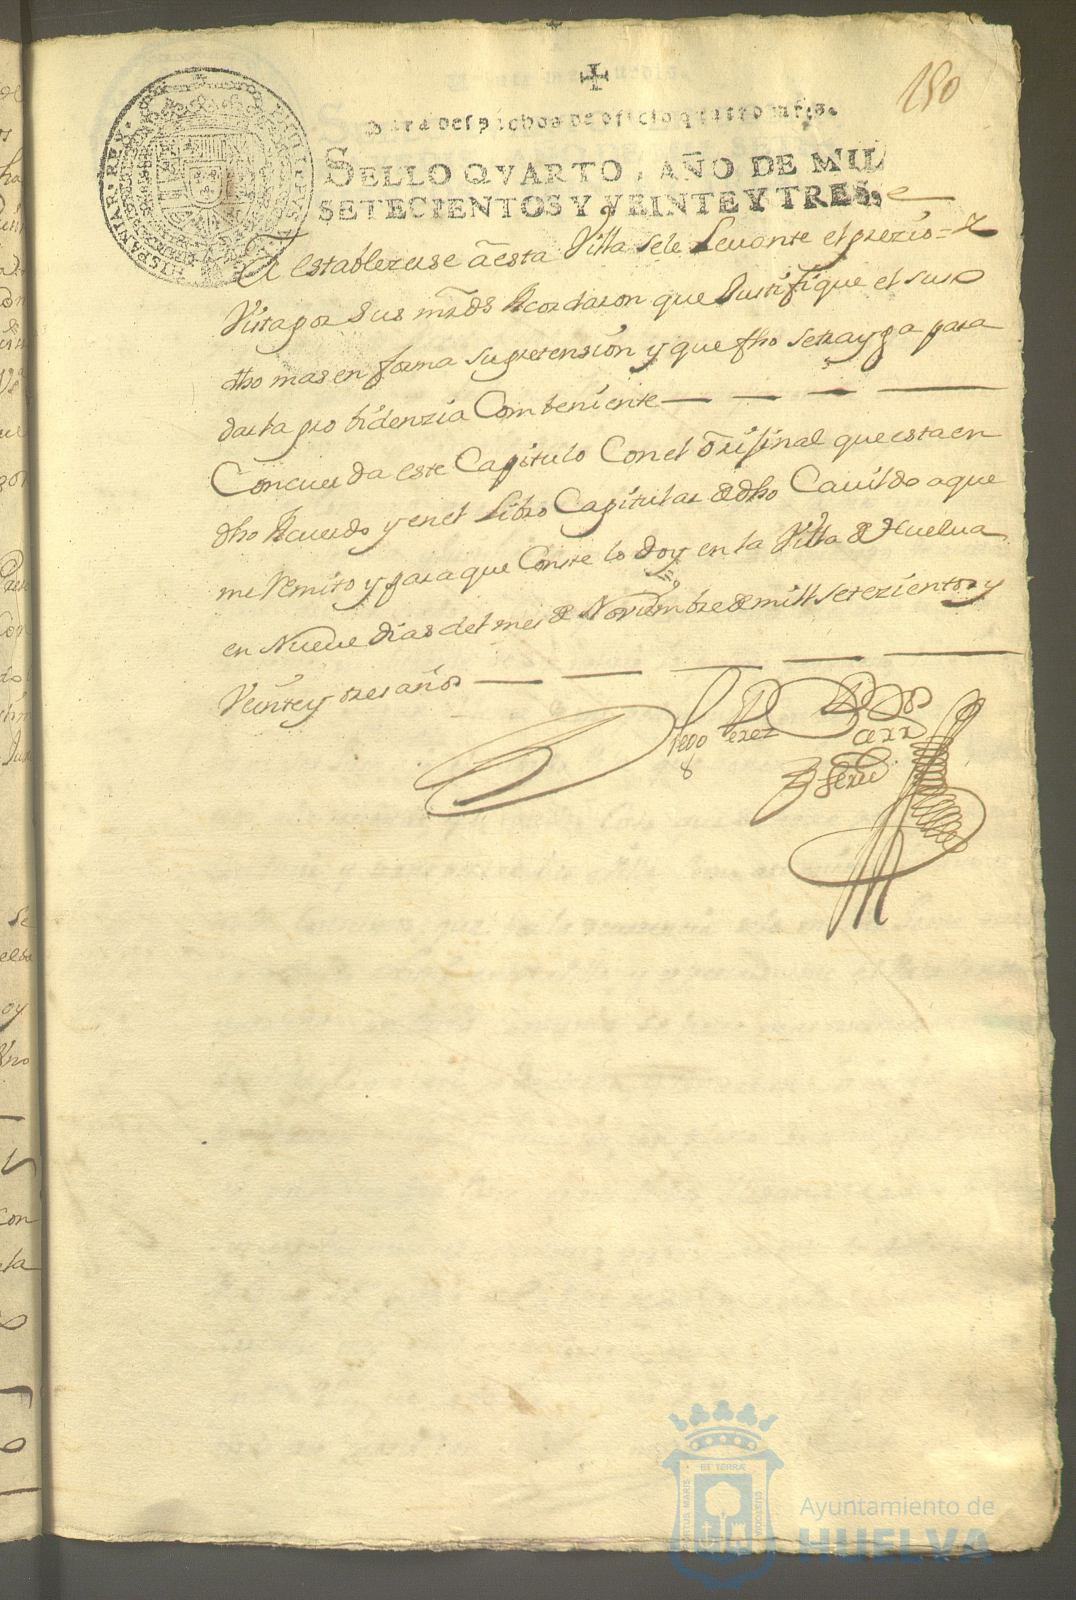 150
Para despachos de oficio quatro mrs.
SELLO QVARTO, AÑO DE MIL
SETECIENTOS Y VEINTE Y TRES,
HISPANIAR·REX· PHILIPPVS
establezerse a esta Villa se le Leuante el prezio = Y
Vista por sus mrds Acordaron que Justifique el suso
dho mas en forma su pretension y que fho se trayga para
dar la probidenzia Combeniente
Concuerda este Capitulo Con el orijinal que esta en
dho Acuerdo y en el Libro Capitular de dho Cauildo a que
me Remito y para que Conste lo doy en la Villa de Huelua
en Nueue dias del mes de Noviembre de mill setezientos y
Veinte y tres años
Diego Perez
ET TERRÆ
PORTUS MARIS
CUSTODIA
Ayuntamiento de
HUELVA